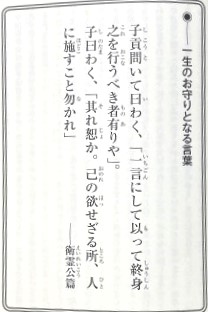 ●――一生のお守りとなる言葉
子貢問いて曰わく、「一言にして以って終身
之を行うべき者有りや」。
子曰わく、「其れ恕か。己の欲せざる所、人
に施すこと勿かれ」
――衛霊公篇